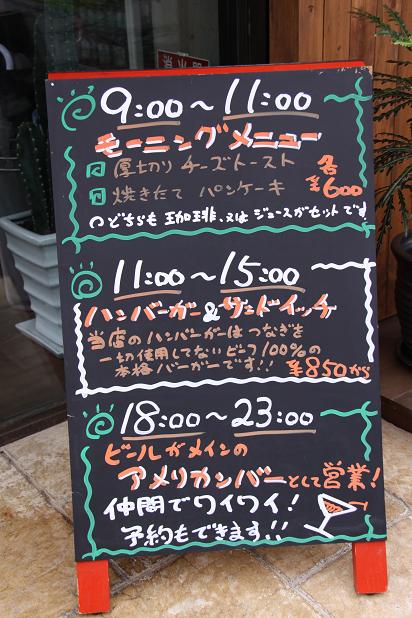 9:00～11:00
モーニングメニュー
厚切り チーズトースト
焼きたて パンケーキ
各
¥600
どちらも 珈琲、又は ジュースがセットです
11:00～15:00
ハンバーガー&サンドイッチ
当店のハンバーガーは つなぎを
一切使用してない ビーフ100%の
本格バーガーです!!
¥850から
18:00～23:00
ビールがメインの
アメリカンバーとして営業!
仲間でワイワイ!
予約もできます!!